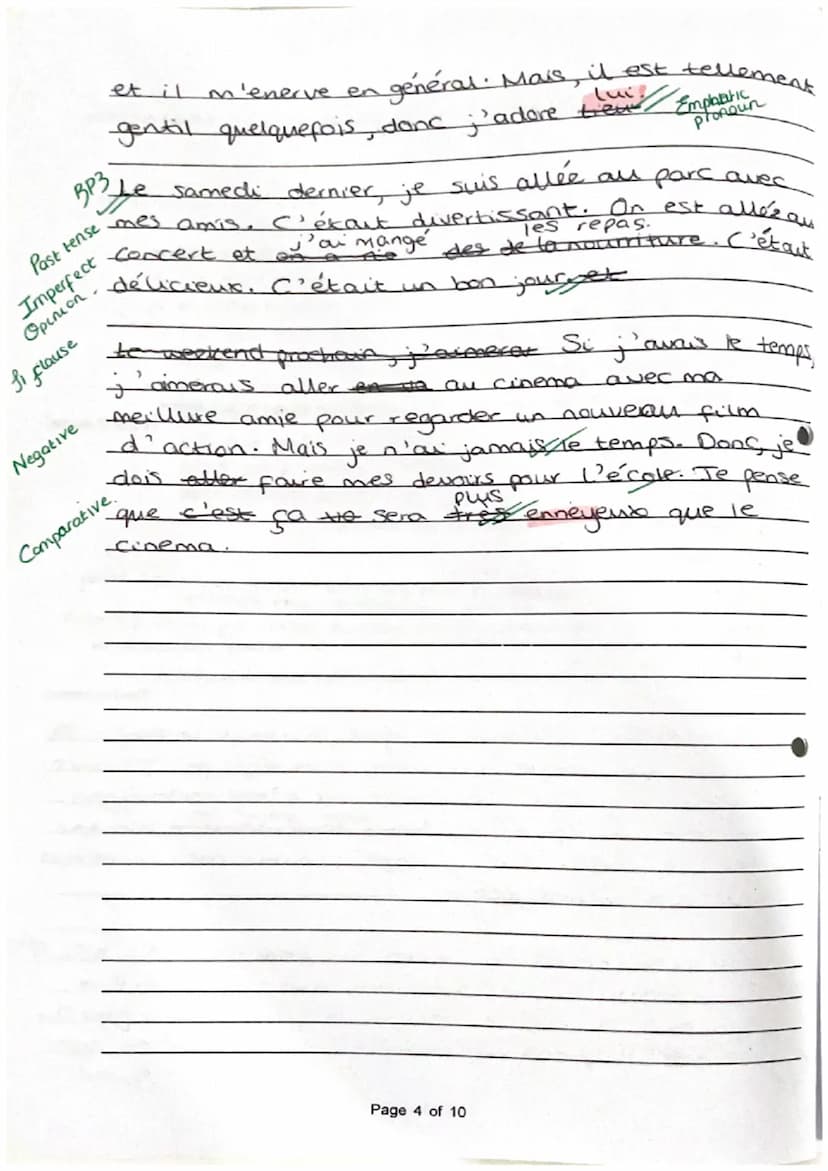 et il m'enerve en général. Mais, il est tellement
lui!
gentil quelquefois, donc j'adore
Emphatic
pronoun
BP3 Le samedi dernier, je suis allée au parc avec
Past tense mes amis. C'était divertissant. On est allés au
les repas.
j'ai mangé
Imperfect concert et on a des de la nourriture. C'était
Opinion. délicieux. C'était un bon jour, et
Si flause le weekend prochain, j'aimerai Si j'avais le temps,
j'aimerais aller au cinema avec ma
meillure amie pour regarder un nouveau film
Negative d'action. Mais je n'ai jamais le temps. Donc, je
dois aller faire mes devoirs pour l'école. Je pense
plus
Comparative. que c'est ça sera très enneyeux que le
cinema.
Page 4 of 10